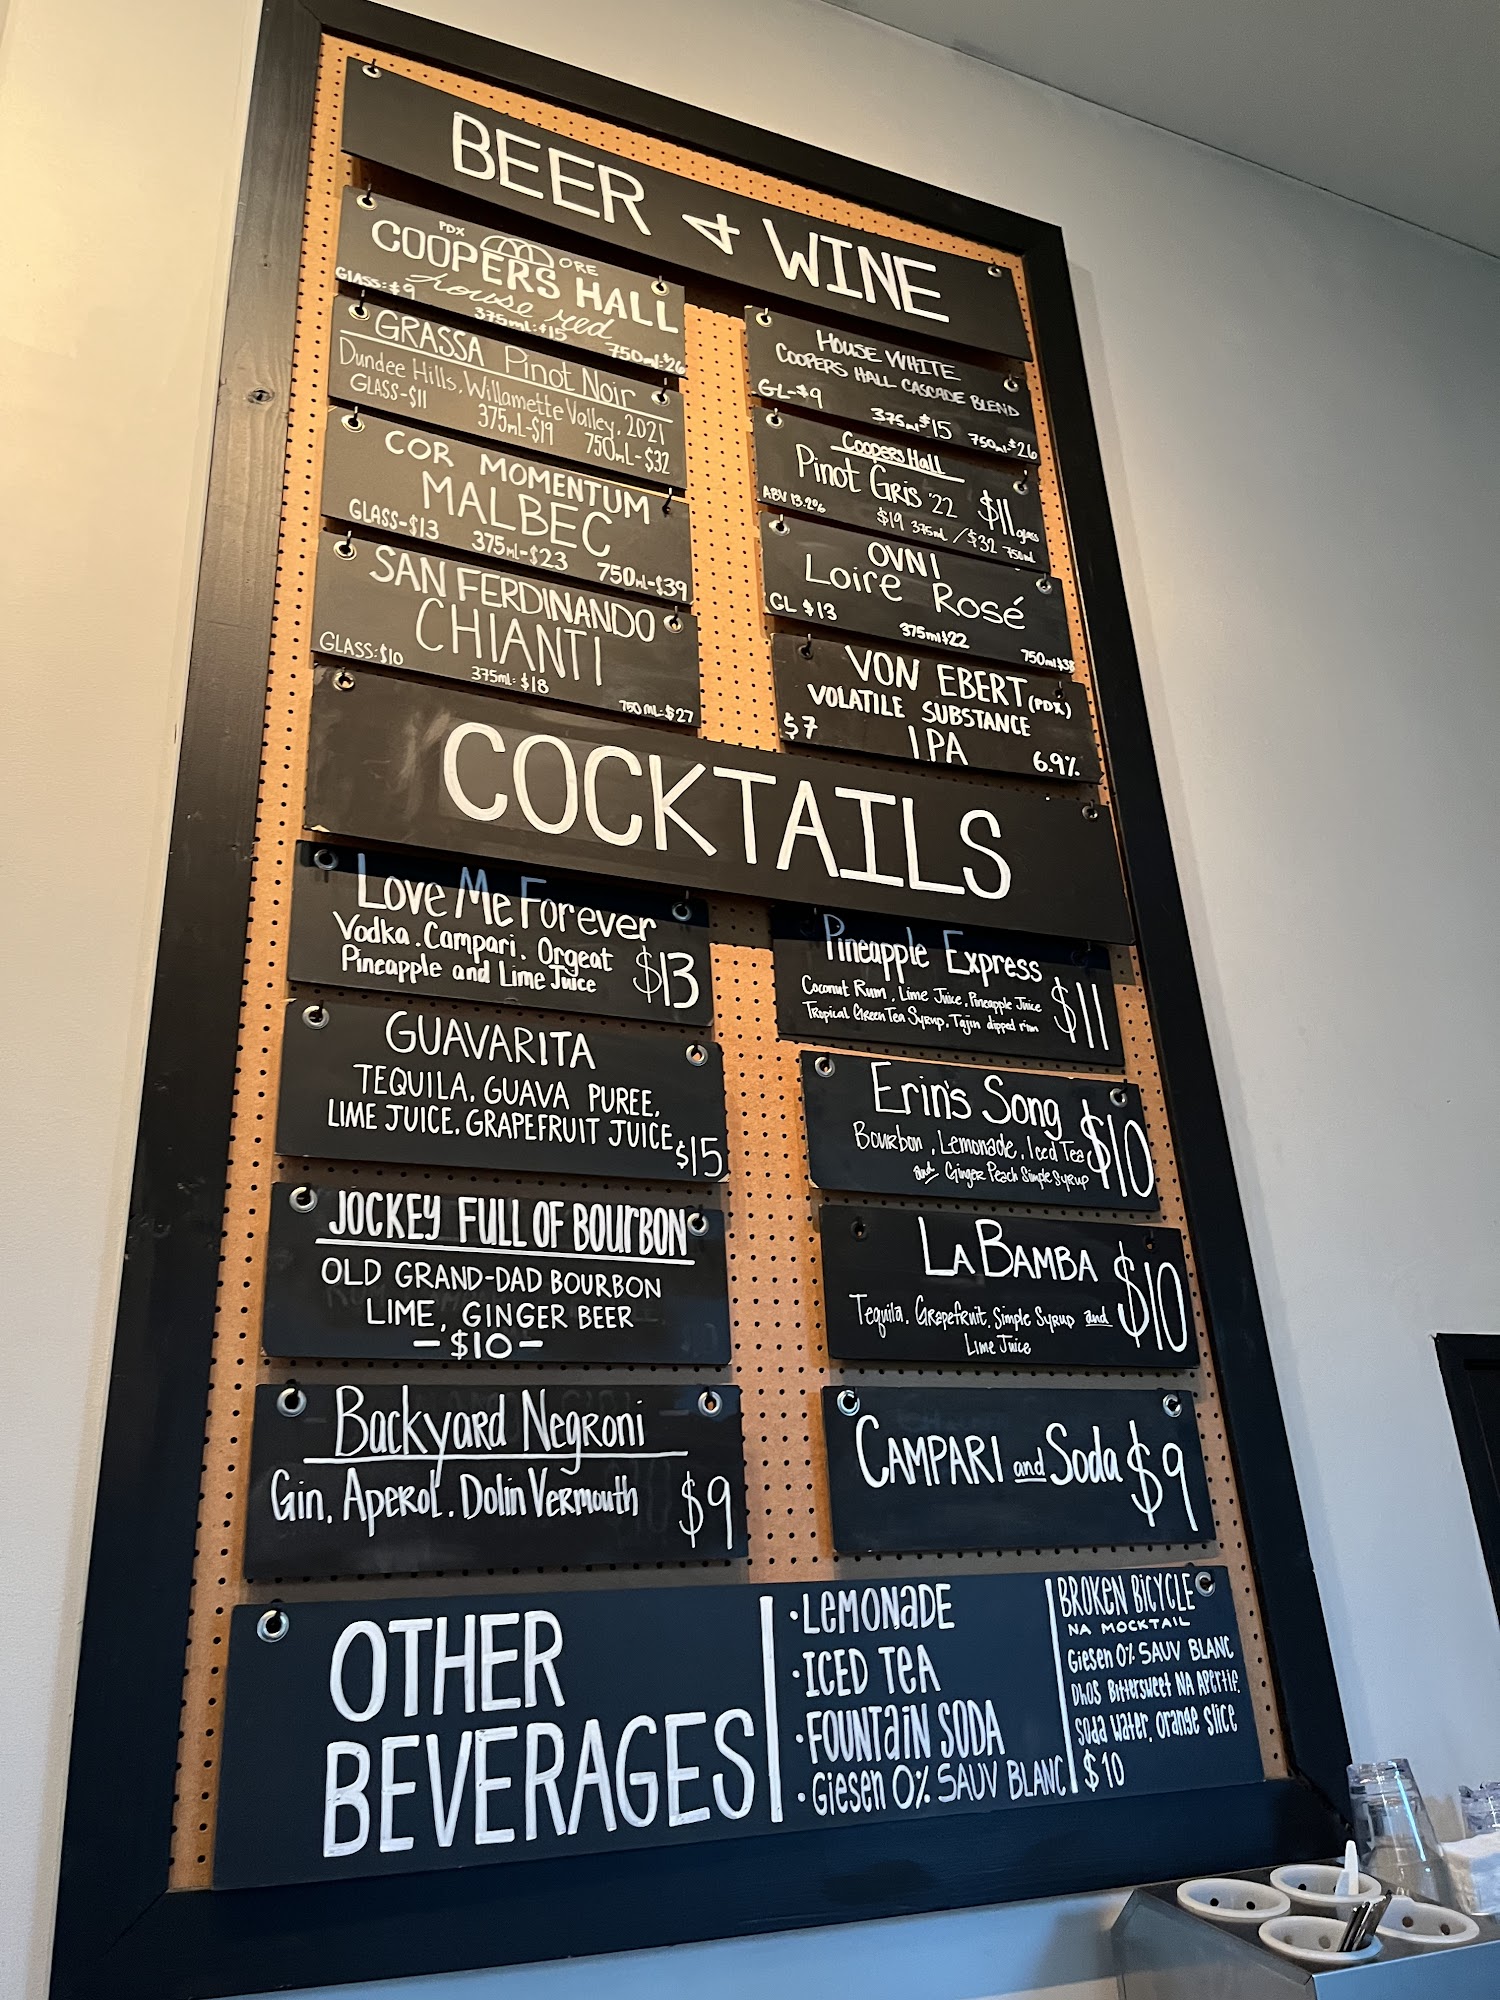 BEER & WINE
PDX ORE
COOPERS HALL
house red
GLASS: $9 375ml: $15 750ml: $26
GRASSA Pinot Noir
Dundee Hills, Willamette Valley, 2021
GLASS-$11 375mL-$19 750mL-$32
COR MOMENTUM
MALBEC
GLASS-$13 375mL-$23 750mL-$39
SAN FERDINANDO
CHIANTI
GLASS: $10 375ml: $18 750ML: $27
HOUSE WHITE
COOPERS HALL CASCADE BLEND
GL-$9 375ml $15 750ml $26
Coopers Hall
Pinot Gris '22 $11 glass
ABV 13.2% $19 375ml / $32 750ml
OVNI
Loire Rosé
GL $13 375ml $22 750ml $38
VON EBERT (PDX)
VOLATILE SUBSTANCE
$7 IPA 6.9%
COCKTAILS
Love Me Forever
Vodka. Campari. Orgeat
Pineapple and Lime Juice $13
GUAVARITA
TEQUILA, GUAVA PUREE,
LIME JUICE, GRAPEFRUIT JUICE $15
JOCKEY FULL OF BOURBON
OLD GRAND-DAD BOURBON
LIME, GINGER BEER
-$10-
Backyard Negroni
Gin, Aperol, Dolin Vermouth $9
Pineapple Express
Coconut Rum, Lime Juice, Pineapple Juice
Tropical Green Tea Syrup, Tajin dipped rim $11
Erin's Song $10
Bourbon, Lemonade, Iced Tea
and Ginger Peach Simple Syrup
LA BAMBA $10
Tequila, Grapefruit, Simple Syrup and
Lime Juice
CAMPARI and Soda $9
OTHER
BEVERAGES
·LEMONADE
·ICED TEA
·FOUNTAIN SODA
·Giesen 0% SAUV BLANC
BROKEN BICYCLE
NA MOCKTAIL
Giesen 0% SAUV BLANC
DHOS Bittersweet NA Apertif,
Soda water, orange slice
$10